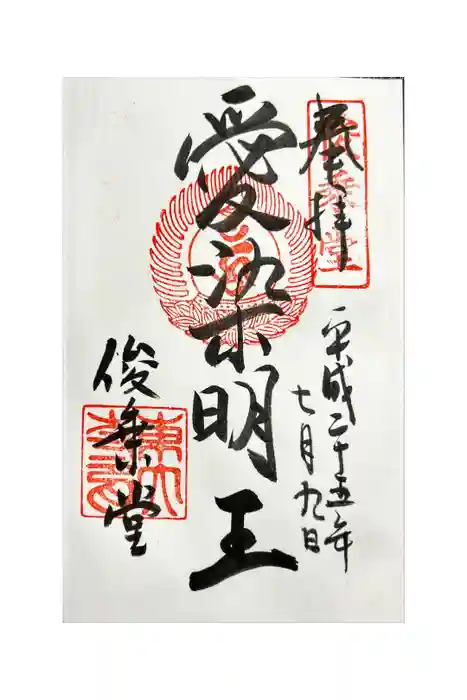 奉拝
俊乗堂
平成二十五年
七月九日
愛染明王
俊乗堂